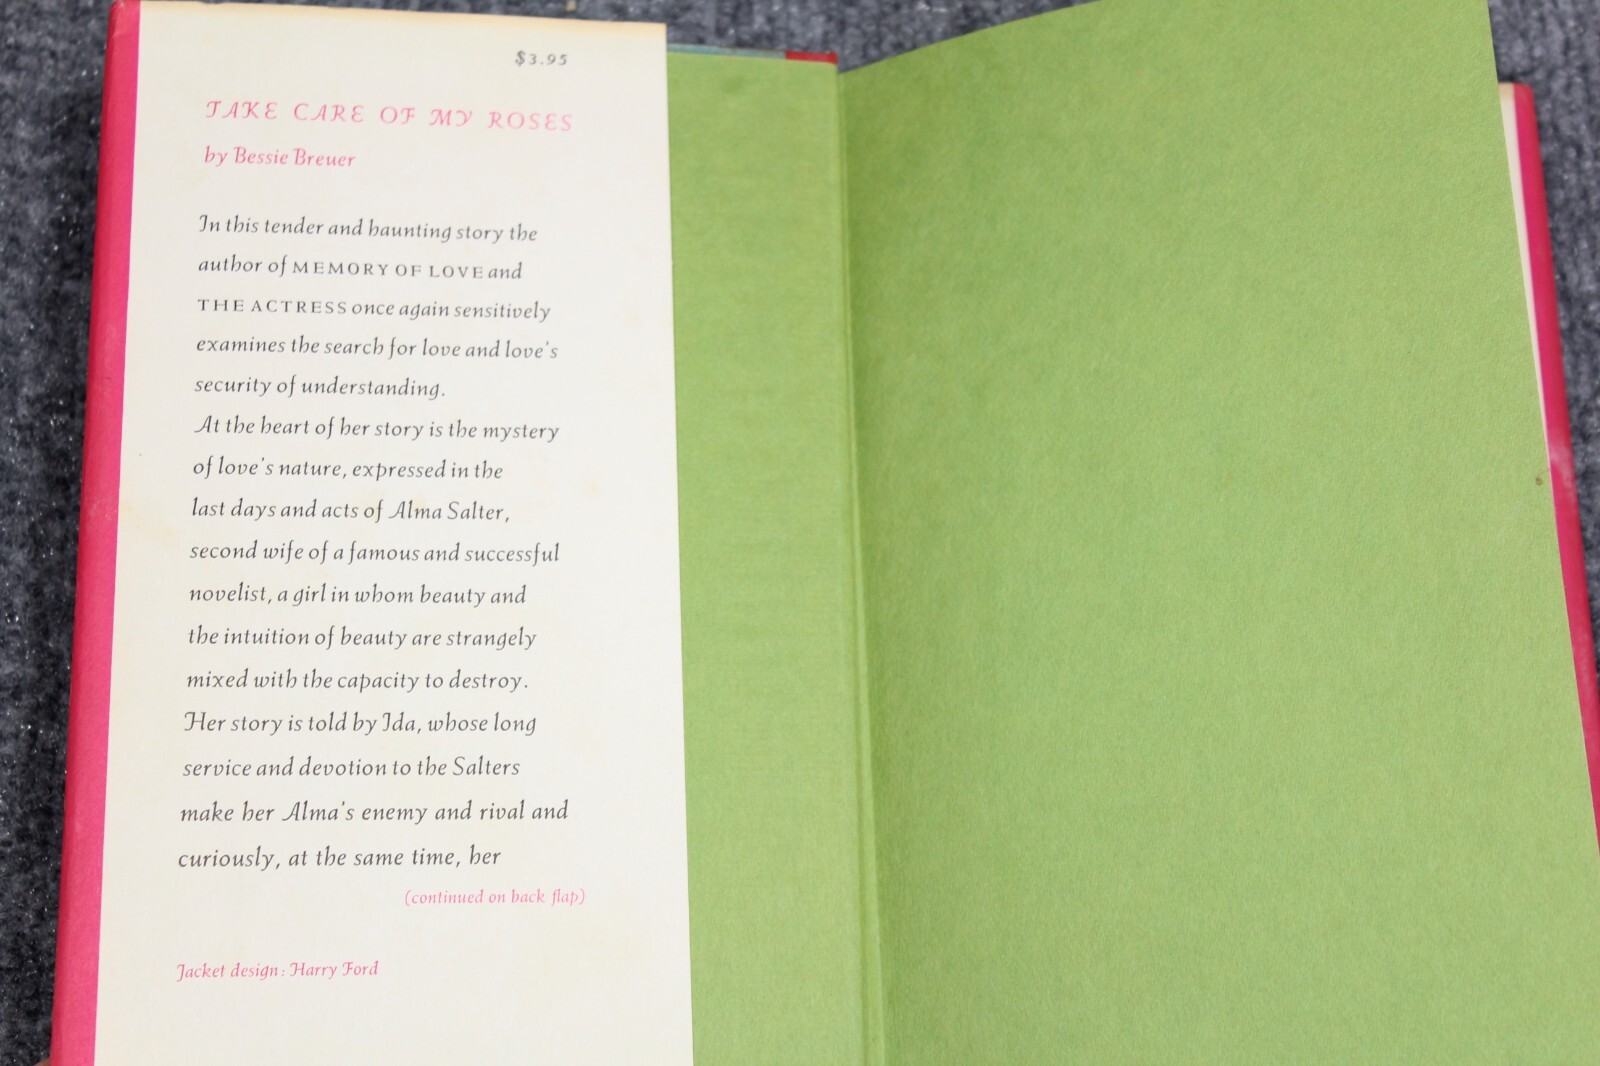 $3.95
TAKE CARE OF MY ROSES
by Bessie Breuer
In this tender and haunting story the
author of MEMORY OF LOVE and
THE ACTRESS once again sensitively
examines the search for love and love's
security of understanding.
At the heart of her story is the mystery
of love's nature, expressed in the
last days and acts of Alma Salter,
second wife of a famous and successful
novelist, a girl in whom beauty and
the intuition of beauty are strangely
mixed with the capacity to destroy.
Her story is told by Ida, whose long
service and devotion to the Salters
make her Alma's enemy and rival and
curiously, at the same time, her
(continued on back flap)
Jacket design: Harry Ford